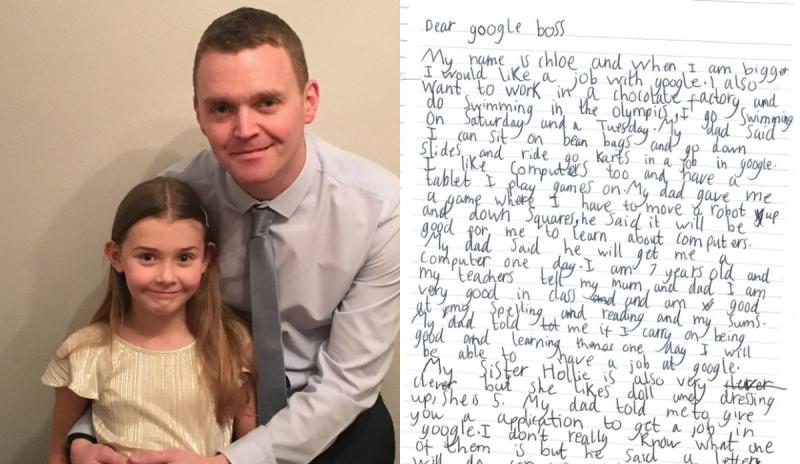 Dear google boss
My name is chloe and when I am bigger
I would like a job with google. I also
want to work in a chocolate factory and
do swimming in the olympics, I go swimming
on Saturday and a Tuesday. My dad said
I can sit on bean bags and go down
slides and ride go karts in a job in google.
I like computers too and have a
tablet I play games on. My dad gave me
a game where I have to move a robot up
and down squares, he said it will be
good for me to learn about computers.
My dad said he will get me a
computer one day. I am 7 years old and
my teachers tell my mum and dad I am
very good in class and and am good
at my spelling and reading and my sums.
My dad told me if I carry on being
good and learning one day I will
be able to have a job at google.
My Sister Hollie is also very
clever but she likes doll and dressing
up, she is 5. My dad told me to give
you a application to get a job in
google. I don't really know what one
of them is but he said a letter
will do